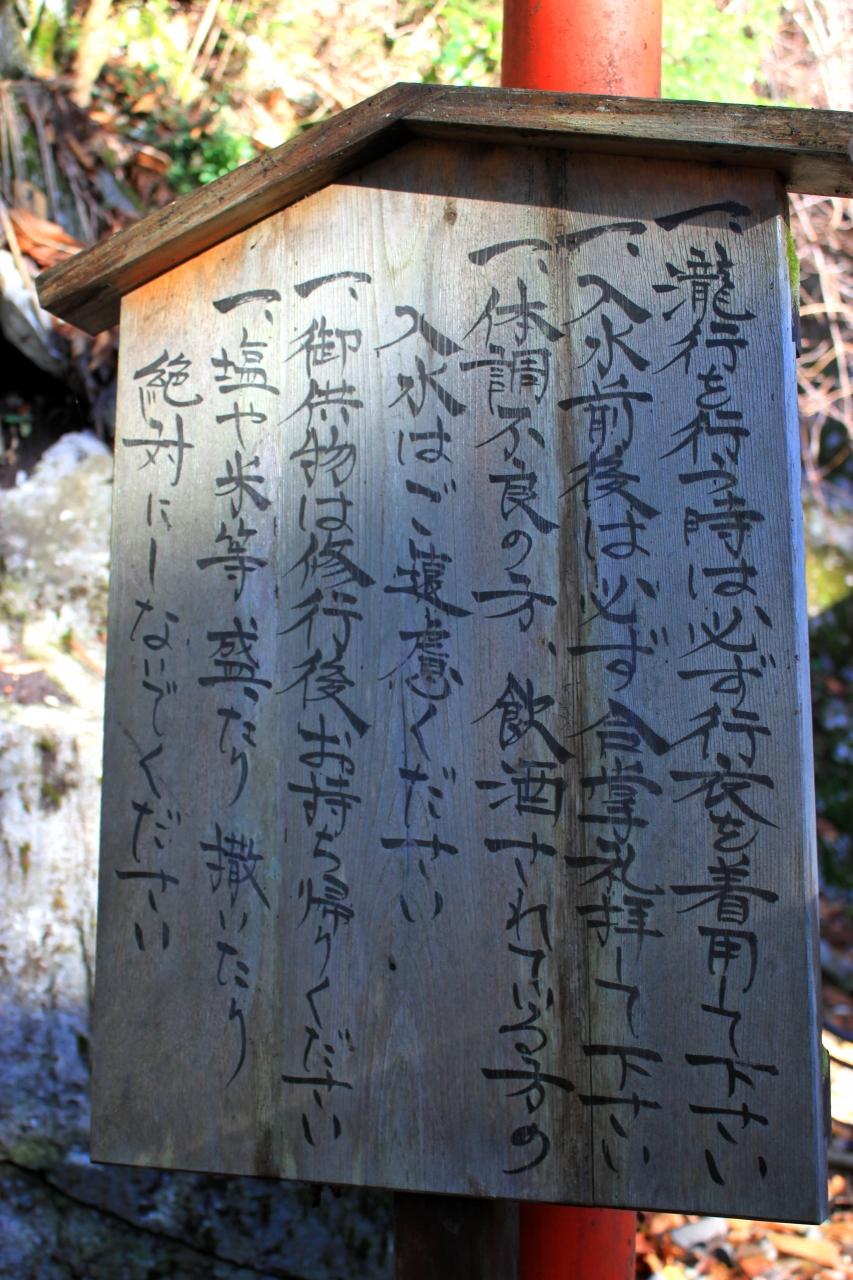 一、瀧行を行う時は必ず行衣を着用して下さい
一、入水前後は必ず合掌礼拝して下さい
一、体調不良の方、飲酒されている方の
入水はご遠慮ください
一、御供物は修行後お持ち帰りください
一、塩や米等盛ったり撒いたり
絶対にしないでください